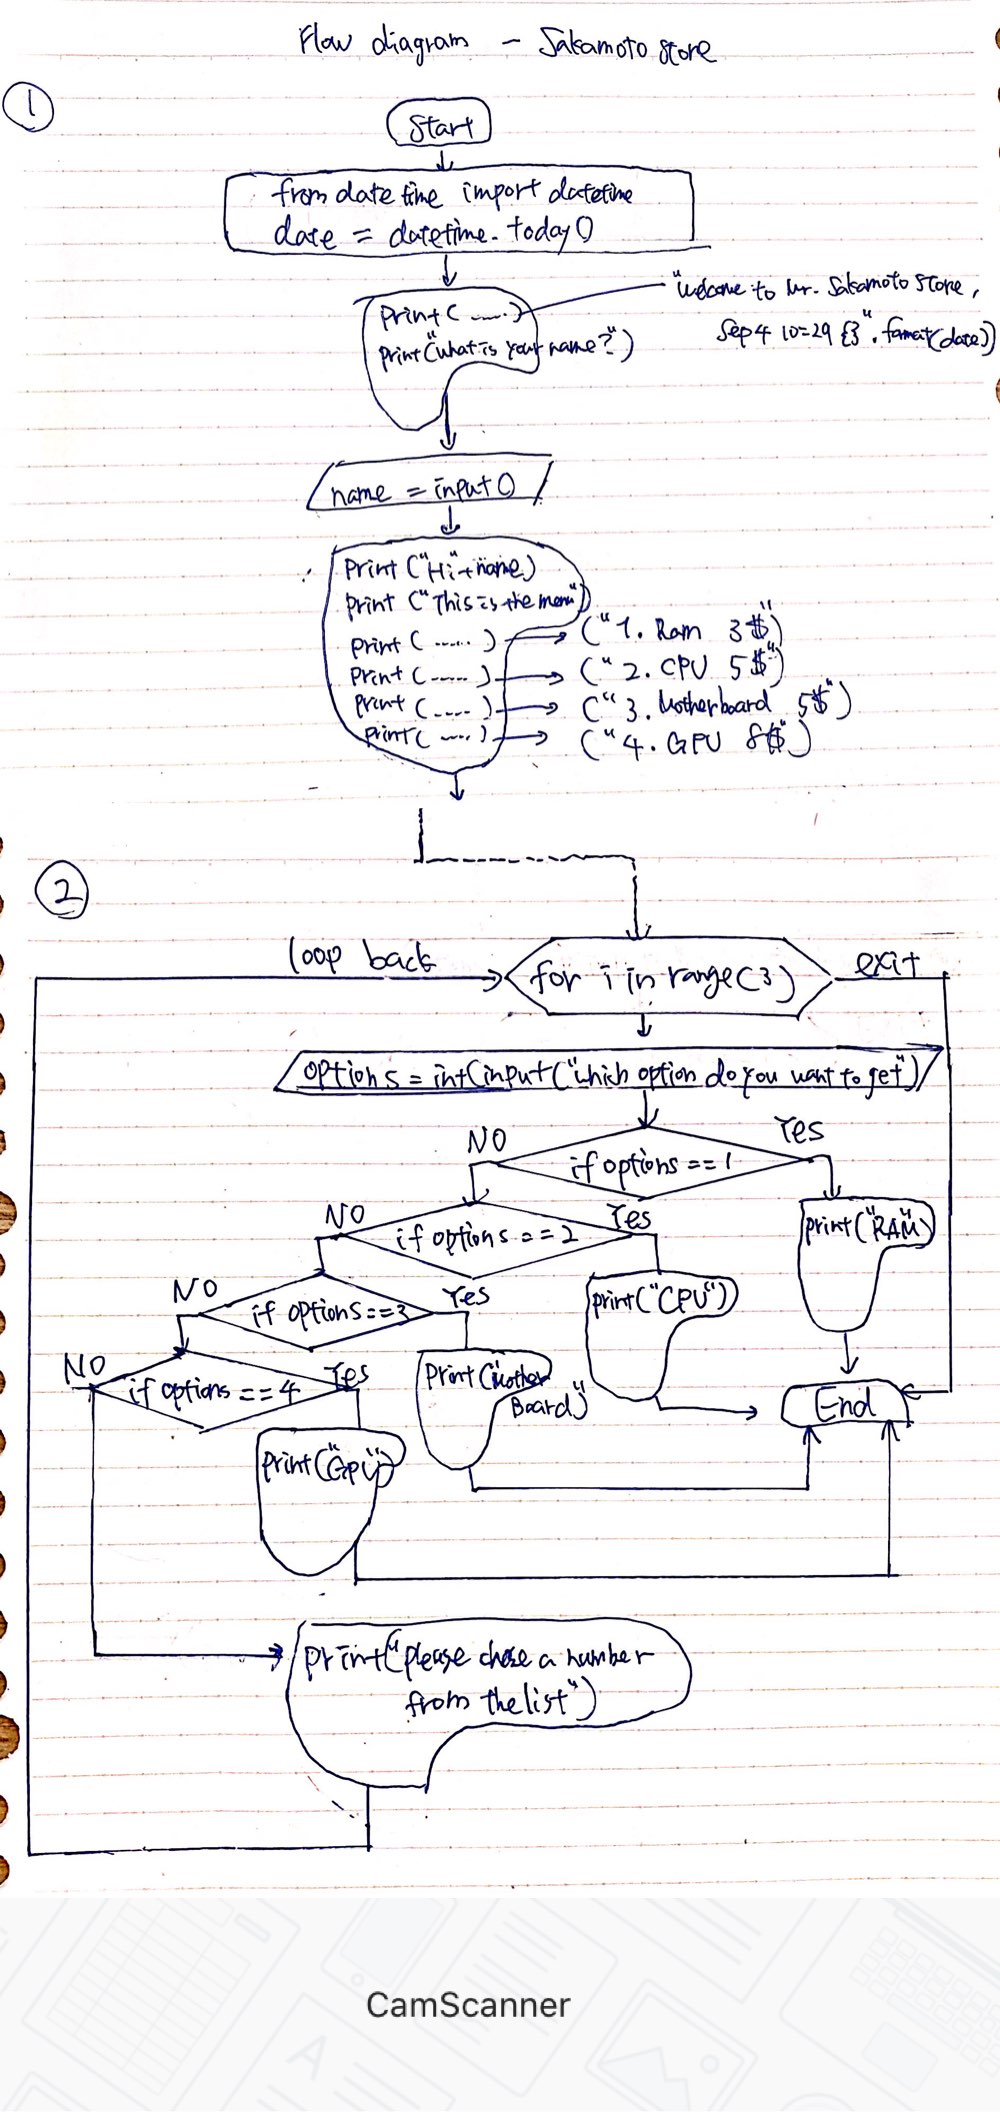 Flow diagram - Sakamoto store
1
Start
from datetime import datetime
date = datetime.today()
print(......)
"welcome to Mr. Sakamoto store,
Sep 4 10=29 {}".format(date))
print("what is your name?")
name = input()
print ("Hi"+name)
print ("This is the menu")
print (......) ("1. Ram 3$")
print (......) ("2. CPU 5$")
print (......) ("3. Motherboard 5$")
print (......) ("4. GPU 8$")
2
loop back
for i in range(3)
exit
options = int(input("which option do you want to get")
NO
if options ==1
Yes
print("RAM")
NO
if options ==2
Yes
print("CPU")
NO
if options==3
Yes
print("Mother
Board")
NO
if options ==4
Yes
print("GPU")
End
print("please chose a number
from the list")
CamScanner